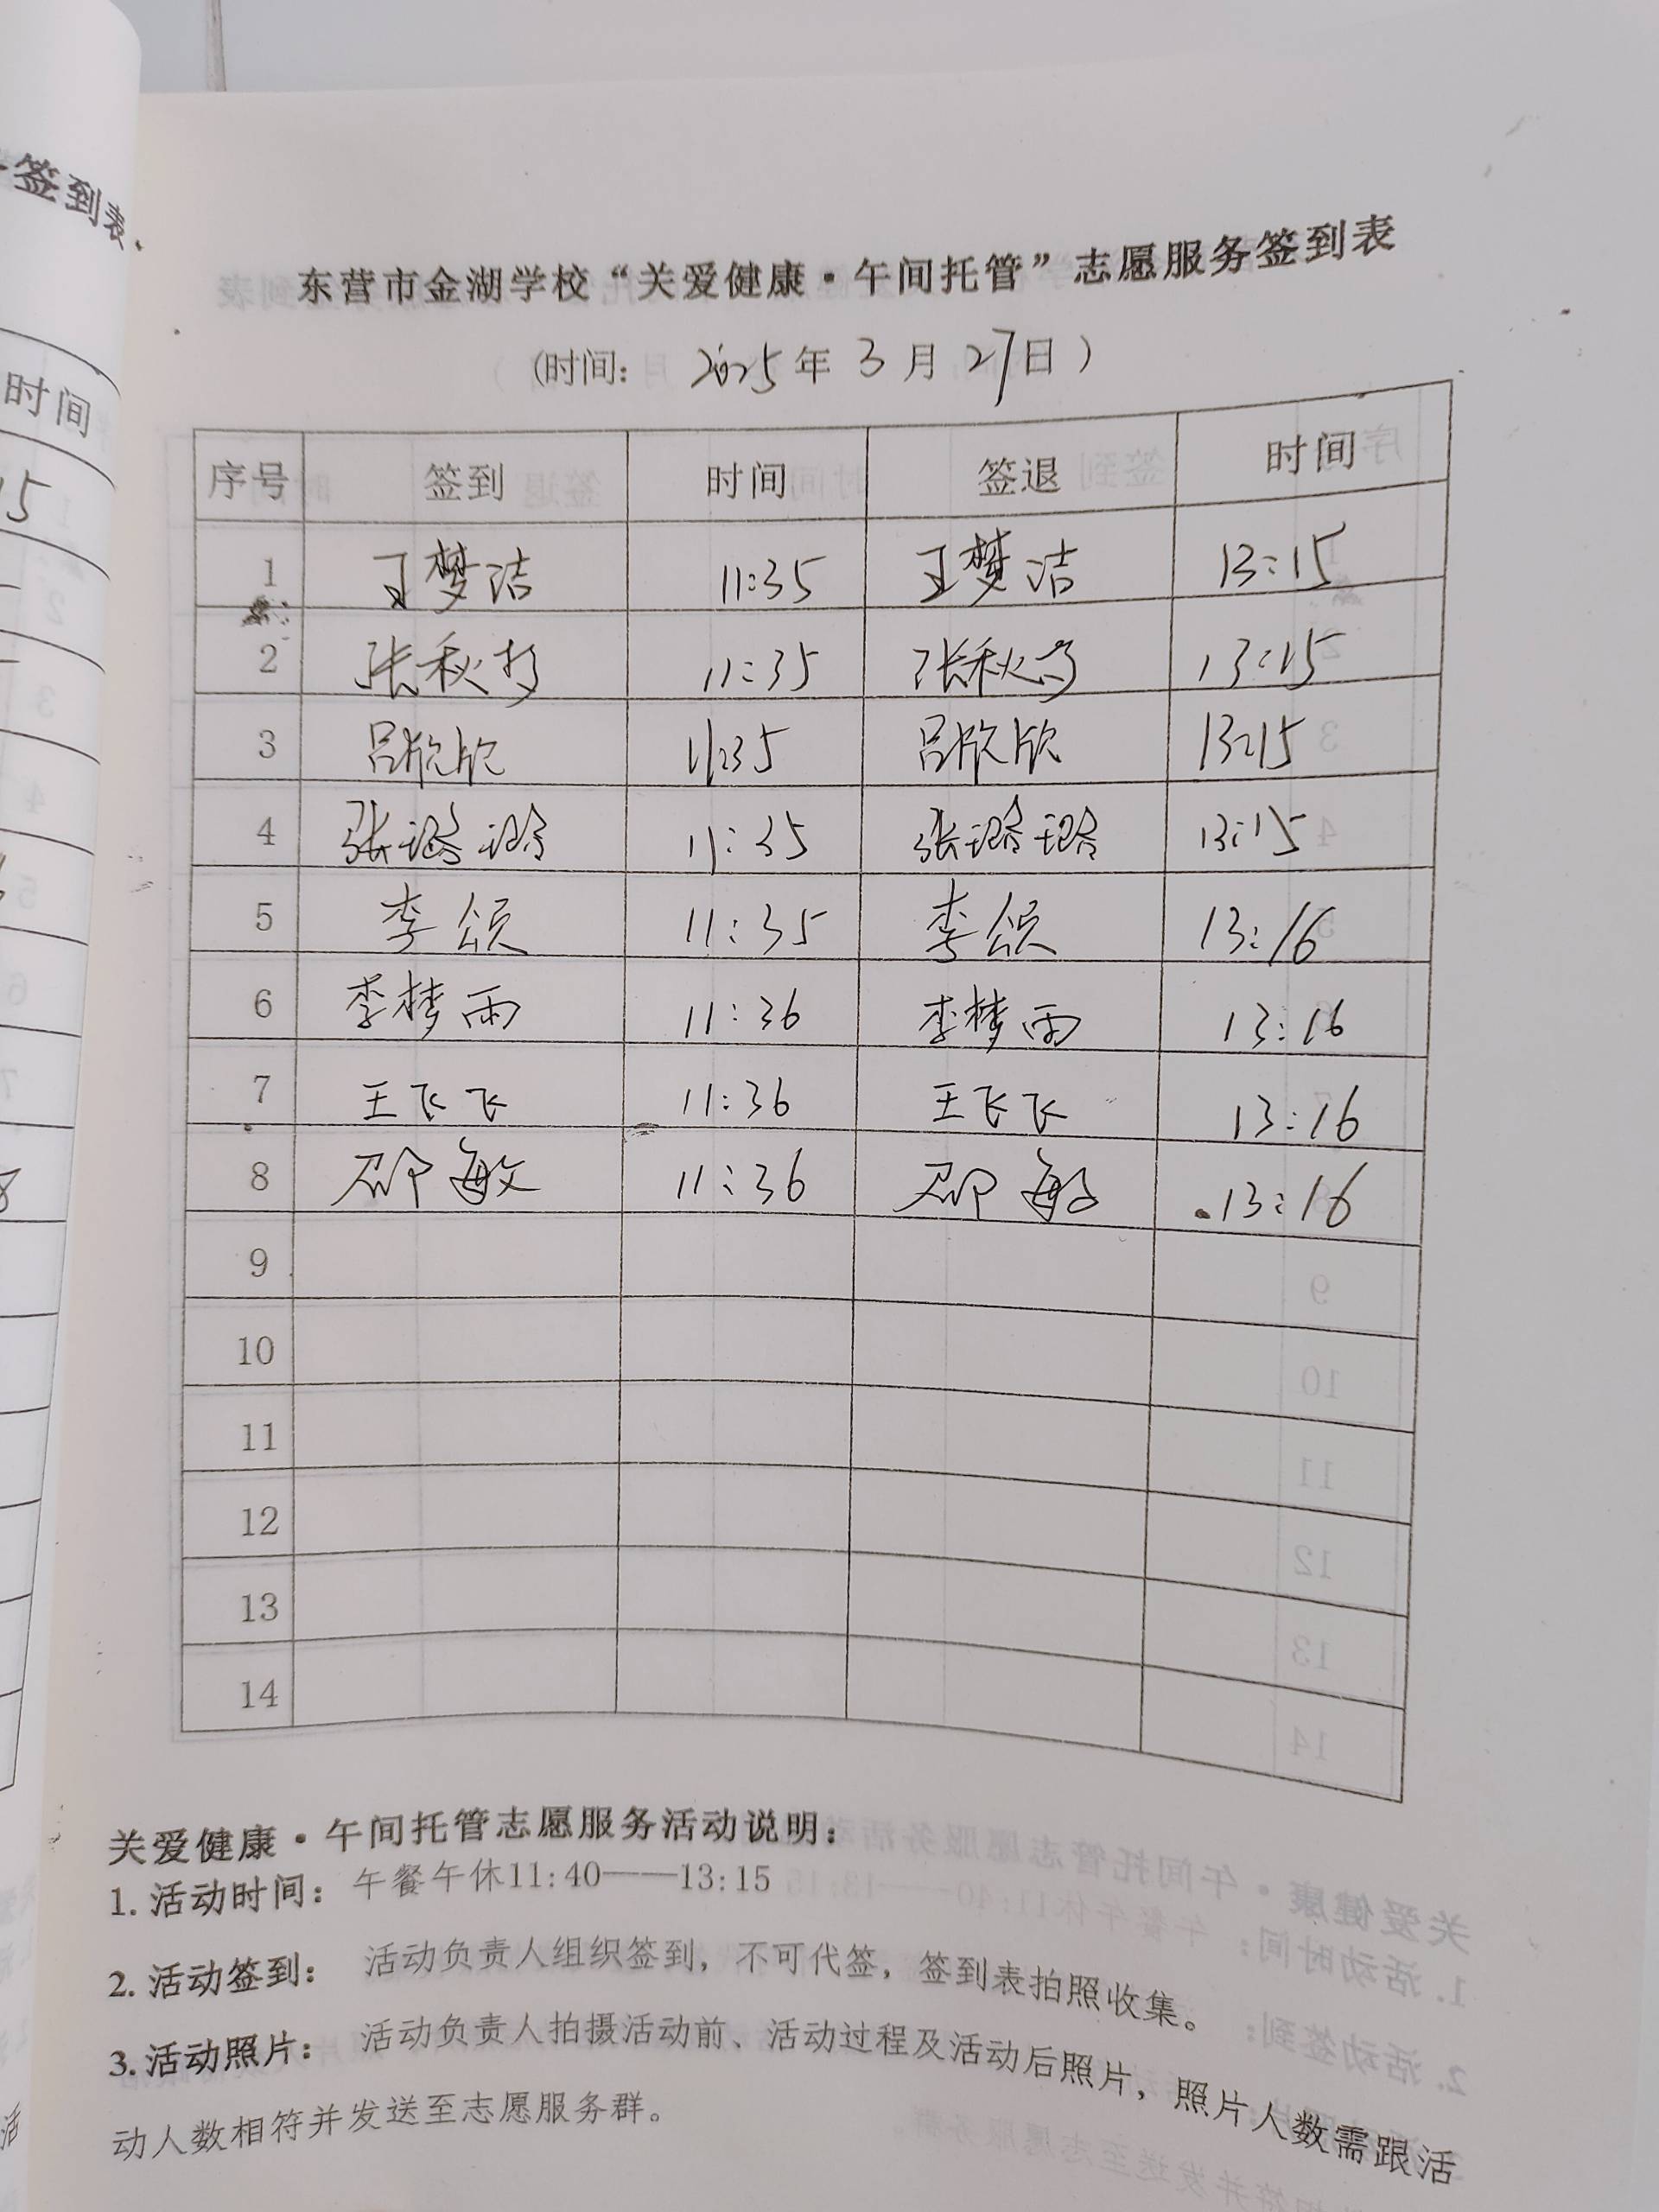 签到表
时间
15
东营市金湖学校“关爱健康·午间托管”志愿服务签到表
(时间: 2025年 3 月 27日)
序号 签到 时间 签退 时间
1 王梦洁 11:35 王梦洁 13:15
2 张秋 11:35 张秋 13:15
3 吕欣欣 11:35 吕欣欣 13:15
4 张璐璐 11:35 张璐璐 13:15
5 李颂 11:35 李颂 13:16
6 李梦雨 11:36 李梦雨 13:16
7 王飞飞 11:36 王飞飞 13:16
8 邵敏 11:36 邵敏 13:16
9
10
11
12
13
14
关爱健康·午间托管志愿服务活动说明:
1. 活动时间: 午餐午休11:40——13:15
2. 活动签到: 活动负责人组织签到，不可代签，签到表拍照收集。
3. 活动照片: 活动负责人拍摄活动前、活动过程及活动后照片，照片人数需跟活
动人数相符并发送至志愿服务群。